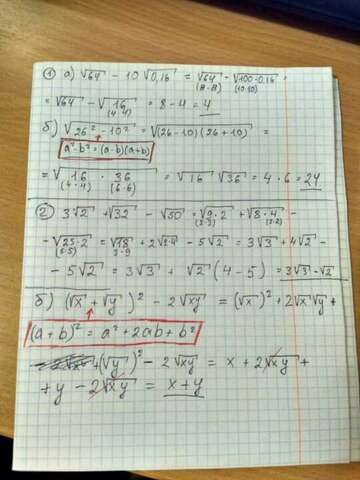 ① а) √64 - 10√0,16 = √64 - √100·0,16 =
(8·8) (10·10)
= √64 - √16 = 8 - 4 = 4
(4·4)
б) √26² - 10² = √(26-10)(26+10) =
a²-b² = (a-b)(a+b)
= √16 · 36 = √16 · √36 = 4 · 6 = 24
(4·4) (6·6)
② 3√2 + √32 - √50 = √9·2 + √8·4 -
(3·3) (2·2)
- √25·2 = √18 + 2√2·4 - 5√2 = 3√3 + 4√2 -
(5·5) 3·9
- 5√2 = 3√3 + √2 (4-5) = 3√3 - √2
б) (√x + √y)² - 2√xy = (√x)² + 2√x√y +
(a+b)² = a² + 2ab + b²
+ (√y)² - 2√xy = x + 2√xy +
+ y - 2√xy = x + y